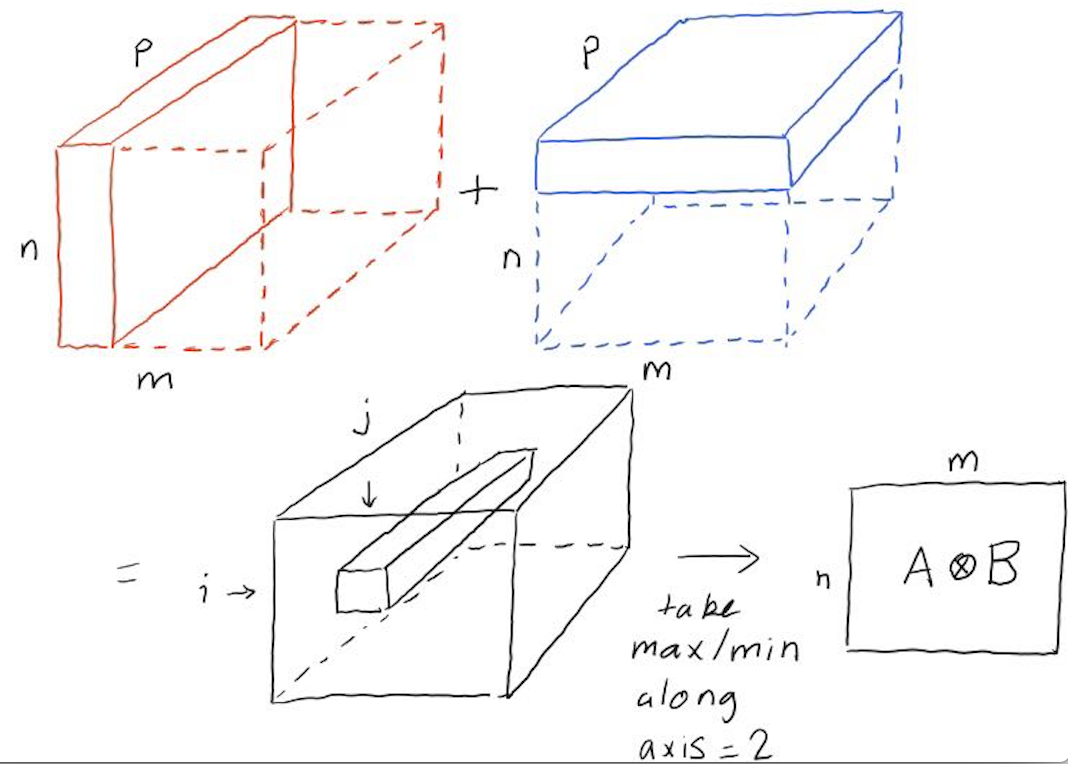 p
p
n
+
n
m
m
j
=
i →
→
take
max/min
along
axis = 2
m
n
A ⊗ B